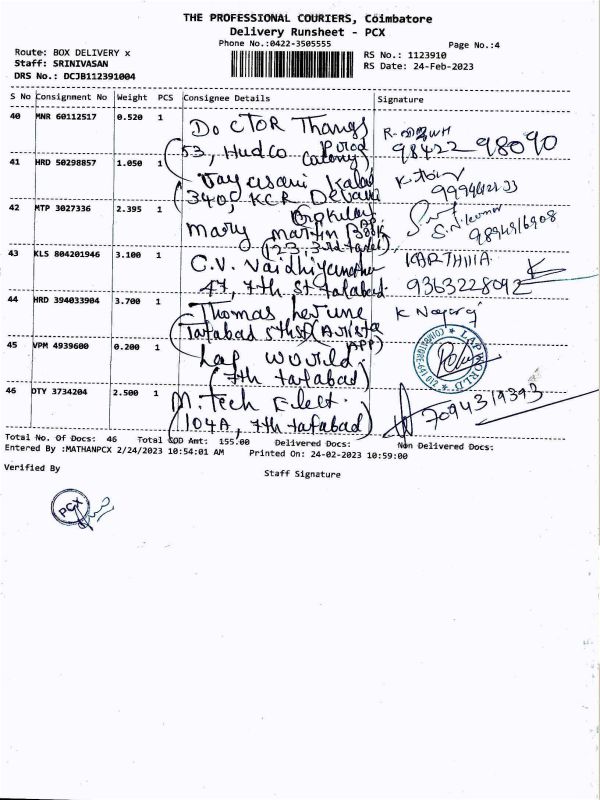 THE PROFESSIONAL COURIERS, Coimbatore
Delivery Runsheet - PCX
Phone No.:0422-3505555
Page No.:4
Route: BOX DELIVERY x
Staff: SRINIVASAN
DRS No.: DCJB112391004
RS No.: 1123910
RS Date: 24-Feb-2023
S No Consignment No Weight PCS Consignee Details Signature
40 MNR 60112517 0.520 1 DOCTOR Thangs
53, Hudco Colony)
98422 98090
41 HRD 50298857 1.050 1 Kalad
(340, KCR Devand
42 MTP 3027336 2.395 1 Mary Martin Book
(123, 3rd tatabad)
S.N. Kumar
9894916908
43 KLS 804201946 3.100 1 C.V. Vaidhiyanatha
47, 7th St tatabad
KARTHIKA
9363228092
44 HRD 394033904 3.700 1 Thomas
Tatabad 5th St (Avista App)
K Nagaraj
45 VPM 4939600 0.200 1 Lap World
(7th tatabad)
LAP WORLD
46 DTY 3734204 2.500 1 M. Tech Elect.
(104A, 7th tatabad)
7094319393
Total No. Of Docs: 46 Total COD Amt: 155.00 Delivered Docs: Non Delivered Docs:
Entered By :MATHANPCX 2/24/2023 10:54:01 AM Printed On: 24-02-2023 10:59:00
Verified By
Staff Signature
PCX